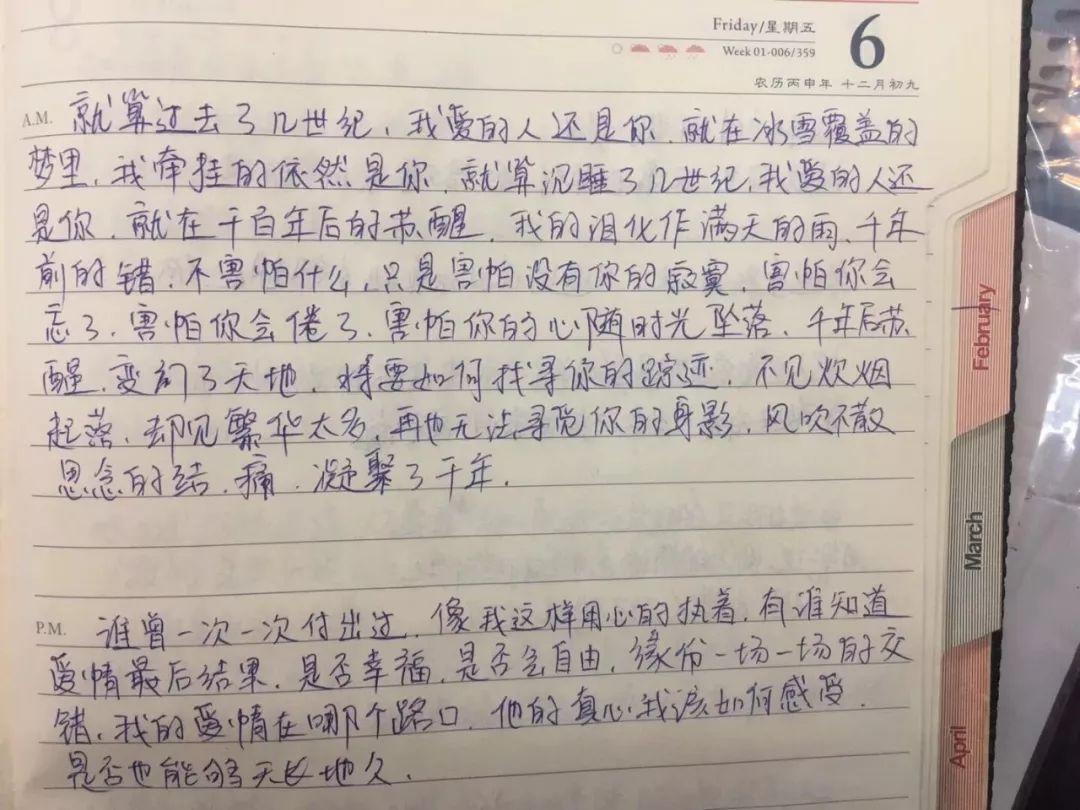 Friday/星期五
6
Week 01-006/359
农历丙申年 十二月初九
A.M. 就算过去了几世纪,我爱的人还是你.就在冰雪覆盖的
梦里,我牵挂的依然是你.就算沉睡了几世纪,我爱的人还
是你.就在千百年后的苏醒.我的泪化作满天的雨、千年
前的错.不害怕什么,只是害怕没有你的寂寞,害怕你会
忘了.害怕你会倦了.害怕你的心随时光坠落.千年后苏
醒.变initial了天地.将要如何找寻你的踪迹.不见炊烟
起落.却见繁华太多.再也无法寻觅你的身影.风吹不散
思念的结.痛.凝聚了千年.
P.M. 谁曾一次一次付出过.像我这样用心的执着.有谁知道
爱情最后结果.是否幸福.是否会自由.缘份一场一场的交
错.我的爱情在哪个路口.他的真心我该如何感受.
是否也能够天长地久.
February
March
April